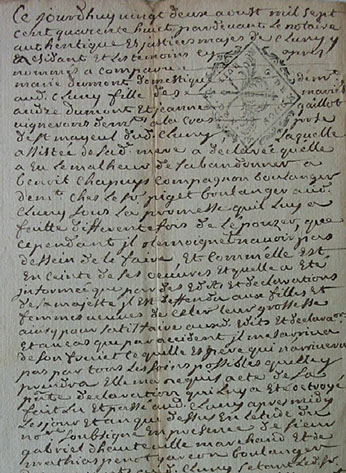 Ce jourd'huy vingt deux aoust mil sept
cent quarente huit pardevant le notaire
authentique es justices mages de Cluny y
residant et les temoins cy apres
nommes a comparue
marie dumont domestique demte
aud. Cluny fille des maries
andre dumont et jeanne gaillot
vignerons demts a la Croas
de st mayeul dud. Cluny laquelle
assistée de lad. mere a declaré quelle
a eu le malheur de sabandonner a
benoit Chapuys compagnon boulanger
demt chez le sr. piget boulanger aud.
Cluny sous la promesse quil luy a
faitte differentes fois de lepouzer, que
cependant il temoigne navoir pas
dessein de le faire, et comme elle est
enceinte de ses oeuvres et quelle a été
informée que par des Edits et declarations
de sa majesté il est deffendu aux filles et
femmes veuves de celer leur grossesse
ainsy pour satisfaire auxd. Edits et declaraons
et au cas que par accident il mesariva
de son fruict ce quelle espere qui narrivera
pas par tous les soins possibles quelle y
prendra Elle ma requis acte de la
pnte declaration qui luy a eté octroyé
fait lu et passé aud. Cluny apres midy
les jour et an que dessus en l'etude du
nore. soubsigné en presence de sieur
gabriel d'hauteville marchand et de
mathias penot garcon boulanger